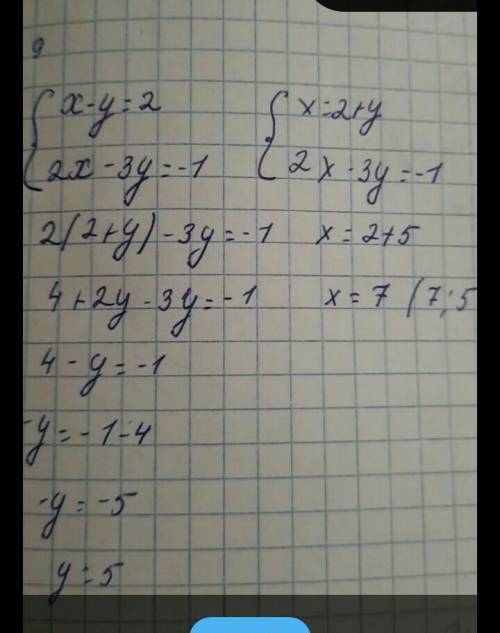 9
{ x-y=2 { x=2+y
2x-3y=-1 2x-3y=-1
2(2+y)-3y=-1 x=2+5
4+2y-3y=-1 x=7 (7;5
4-y=-1
-y=-1-4
-y=-5
y=5